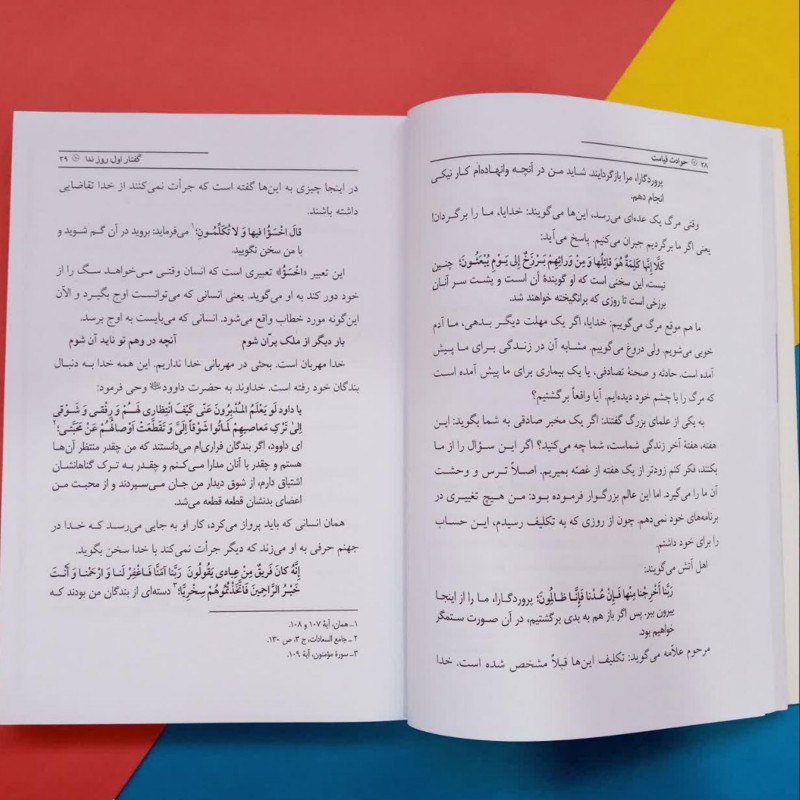 ۲۸ ⊙ حوادث قیامت
پروردگارا، مرا بازگردانید. شاید من در آنچه وانهاده‌ام کار نیکی
انجام دهم.
وقتی مرگ یک عده‌ای می‌رسد، این‌ها می‌گویند: خدایا، ما را برگردان!
یعنی اگر ما برگردیم جبران می‌کنیم. پاسخ می‌آید:
كَلَّا إِنَّهَا كَلِمَةٌ هُوَ قَائِلُهَا وَ مِنْ وَرَائِهِمْ بَرْزَخٌ إِلَى يَوْمِ يُبْعَثُونَ؛ چنین
نیست، این سخنی است که او گویندهٔ آن است و پشت سر آنان
برزخی است تا روزی که برانگیخته خواهند شد.
ما هم موقع مرگ می‌گوییم: خدایا، اگر یک مهلت دیگر بدهی، ما آدم
خوبی می‌شویم. ولی دروغ می‌گوییم. مشابه آن در زندگی برای ما پیش
آمده است. حادثه و صحنهٔ تصادفی، یا یک بیماری برای ما پیش آمده است
که مرگ را با چشم خود دیده‌ایم. آیا واقعاً برگشتیم؟
به یکی از علمای بزرگ گفتند: اگر یک مخبر صادقی به شما بگوید: این
هفته، هفتهٔ آخر زندگی شماست، شما چه می‌کنید؟ اگر این سؤال را از ما
بکنند، فکر کنم زودتر از یک هفته از غصّه بمیریم. اصلاً ترس و وحشت
آن ما را می‌گیرد. اما این عالم بزرگوار فرموده بود: من هیچ تغییری در
برنامه‌های خود نمی‌دهم. چون از روزی که به تکلیف رسیدم، این حساب
را برای خود داشتم.
اهل آتش می‌گویند:
رَبَّنَا أَخْرِجْنَا مِنْهَا فَإِنْ عُدْنَا فَإِنَّا ظَالِمُونَ؛ پروردگارا، ما را از اینجا
بیرون ببر. پس اگر باز هم به بدی برگشتیم، در آن صورت ستمگر
خواهیم بود.
مرحوم علّامه می‌گوید: تکلیف این‌ها قبلاً مشخص شده است. خدا
گفتار اول روز ندا ⊙ ۲۹
در اینجا چیزی به این‌ها گفته است که جرأت نمی‌کنند از خدا تقاضایی
داشته باشند.
قالَ اخْسَؤُا فيها وَ لا تُكَلِّمُونِ؛۱ می‌فرماید: بروید در آن گم شوید و
با من سخن نگویید.
این تعبیر «اخْسَؤُا» تعبیری است که انسان وقتی می‌خواهد سگ را از
خود دور کند به او می‌گوید. یعنی انسانی که می‌توانست اوج بگیرد و الآن
این‌گونه مورد خطاب واقع می‌شود. انسانی که می‌بایست به اوج برسد.
بار دیگر از ملک پرّان شوم آنچه در وهم تو ناید آن شوم
خدا مهربان است. بحثی در مهربانی خدا نداریم. این همه خدا به دنبال
بندگان خود رفته است. خداوند به حضرت داوود وحی فرمود:
يا داود لَو يَعْلَمُ الْمُدْبِرُونَ عَنّي كَيْفَ انْتِظارِي لَهُمْ وَ رِفْقِي وَ شَوْقِي
إلى تَرْكِ مَعاصِيهِمْ لَماتُوا شَوْقاً إلَيَّ وَ تَقَطَّعَتْ أَوْصالُهُمْ عَنْ مَحَبَّتِي؛۲
ای داوود، اگر بندگان فراری‌ام می‌دانستند که من چقدر منتظر آن‌ها
هستم و چقدر با آنان مدارا می‌کنم و چقدر به ترک گناهانشان
اشتیاق دارم، از شوق دیدار من جان می‌سپردند و از محبت من
اعضای بدنشان قطعه قطعه می‌شد.
همان انسانی که باید پرواز می‌کرد، کار او به جایی می‌رسد که خدا در
جهنم حرفی به او می‌زند که دیگر جرأت نمی‌کند با خدا سخن بگوید.
إِنَّهُ كانَ فَريقٌ مِنْ عِبادي يَقُولُونَ رَبَّنا آمَنَّا فَاغْفِرْ لَنا وَ ارْحَمْنا وَ أَنْتَ
خَيْرُ الرَّاحِمينَ فَاتَّخَذْتُمُوهُمْ سِخْرِيًّا؛۳ دسته‌ای از بندگان من بودند که
۱ ـ همان، آیهٔ ۱۰۷ و ۱۰۸.
۲ ـ جامع السعادات، ج ۳، ص ۱۳۰.
۳ ـ سورهٔ مؤمنون، آیهٔ ۱۰۹.